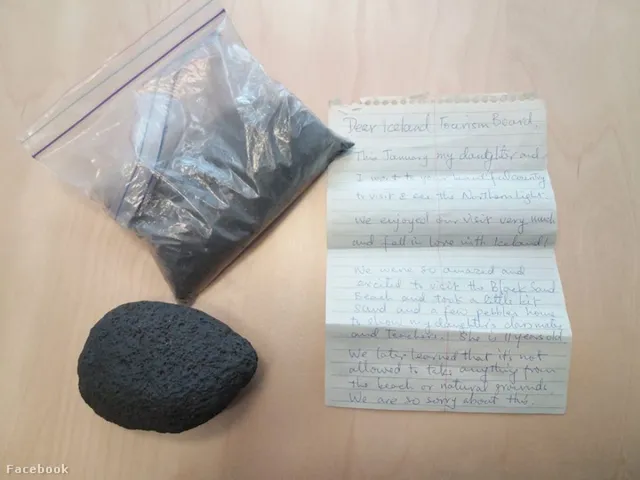 Dear Iceland Tourism Board,
This January my daughter and
I went to your beautiful country
to visit & see the Northern Light.
We enjoyed our visit very much
and fall in love with Iceland!
We were so amazed and
excited to visit the Black Sand
Beach and took a little bit
sand and a few pebbles home
to show my daughter's classmates
and teachers! She is 11 years old
We later learned that it's not
allowed to take anything from
the beach or natural grounds.
We are so sorry about this.
Facebook